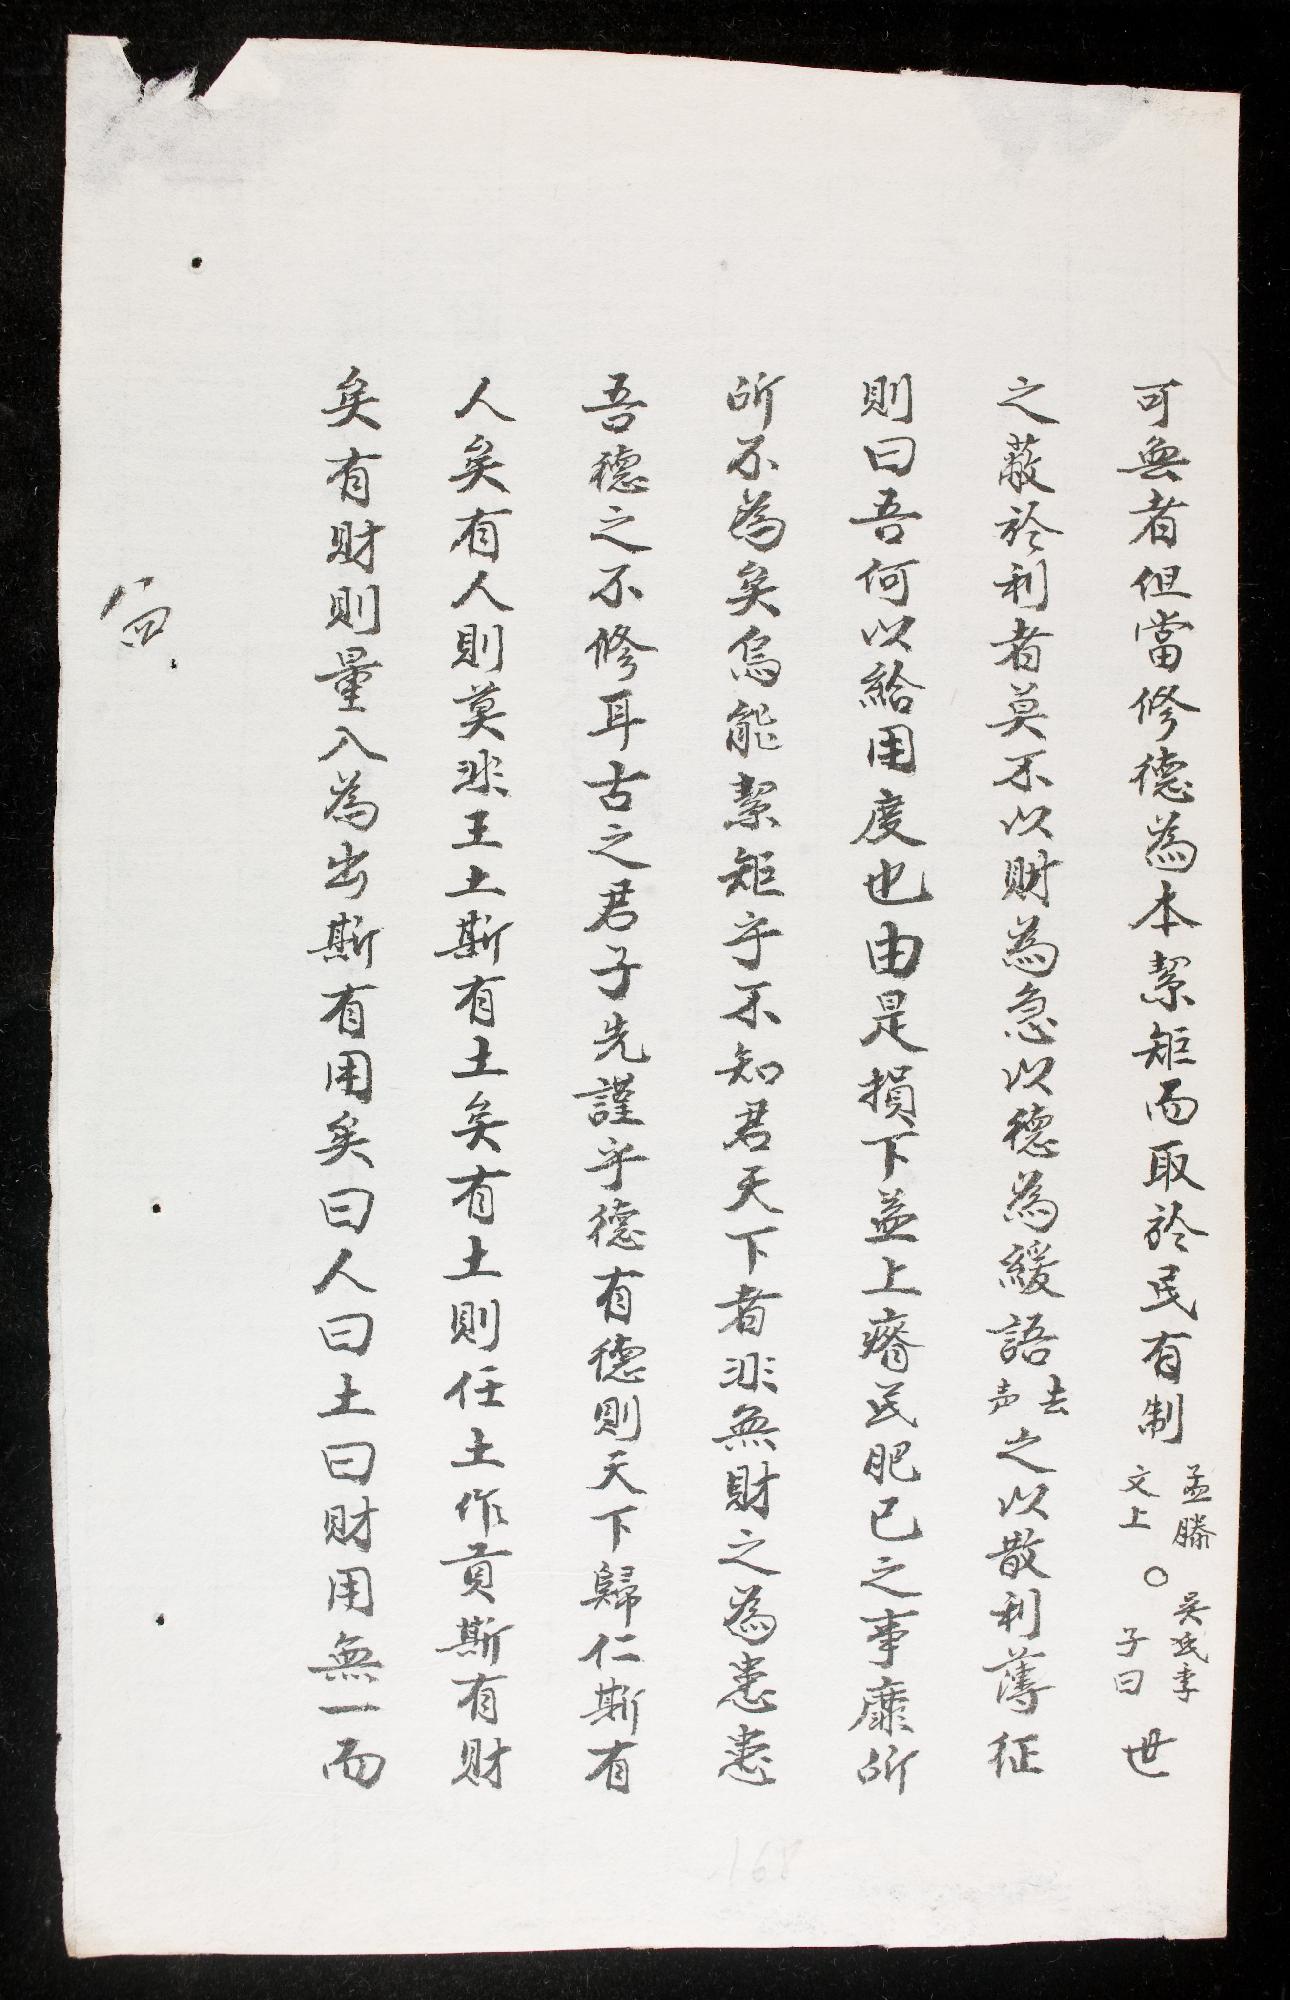 可無者但當修德為本絜矩而取於民有制孟滕文上○吳氏季子曰世
之蔽於利者莫不以財為急以德為緩語去声之以散利薄征
則曰吾何以給用度也由是損下益上瘠民肥已之事靡所
所不為矣烏能絜矩乎不知君天下者非無財之為患患
吾德之不修耳古之君子先謹乎德有德則天下歸仁斯有
人矣有人則莫非王土斯有土矣有土則任土作貢斯有財
矣有財則量入為出斯有用矣曰人曰土曰財用無一而
168